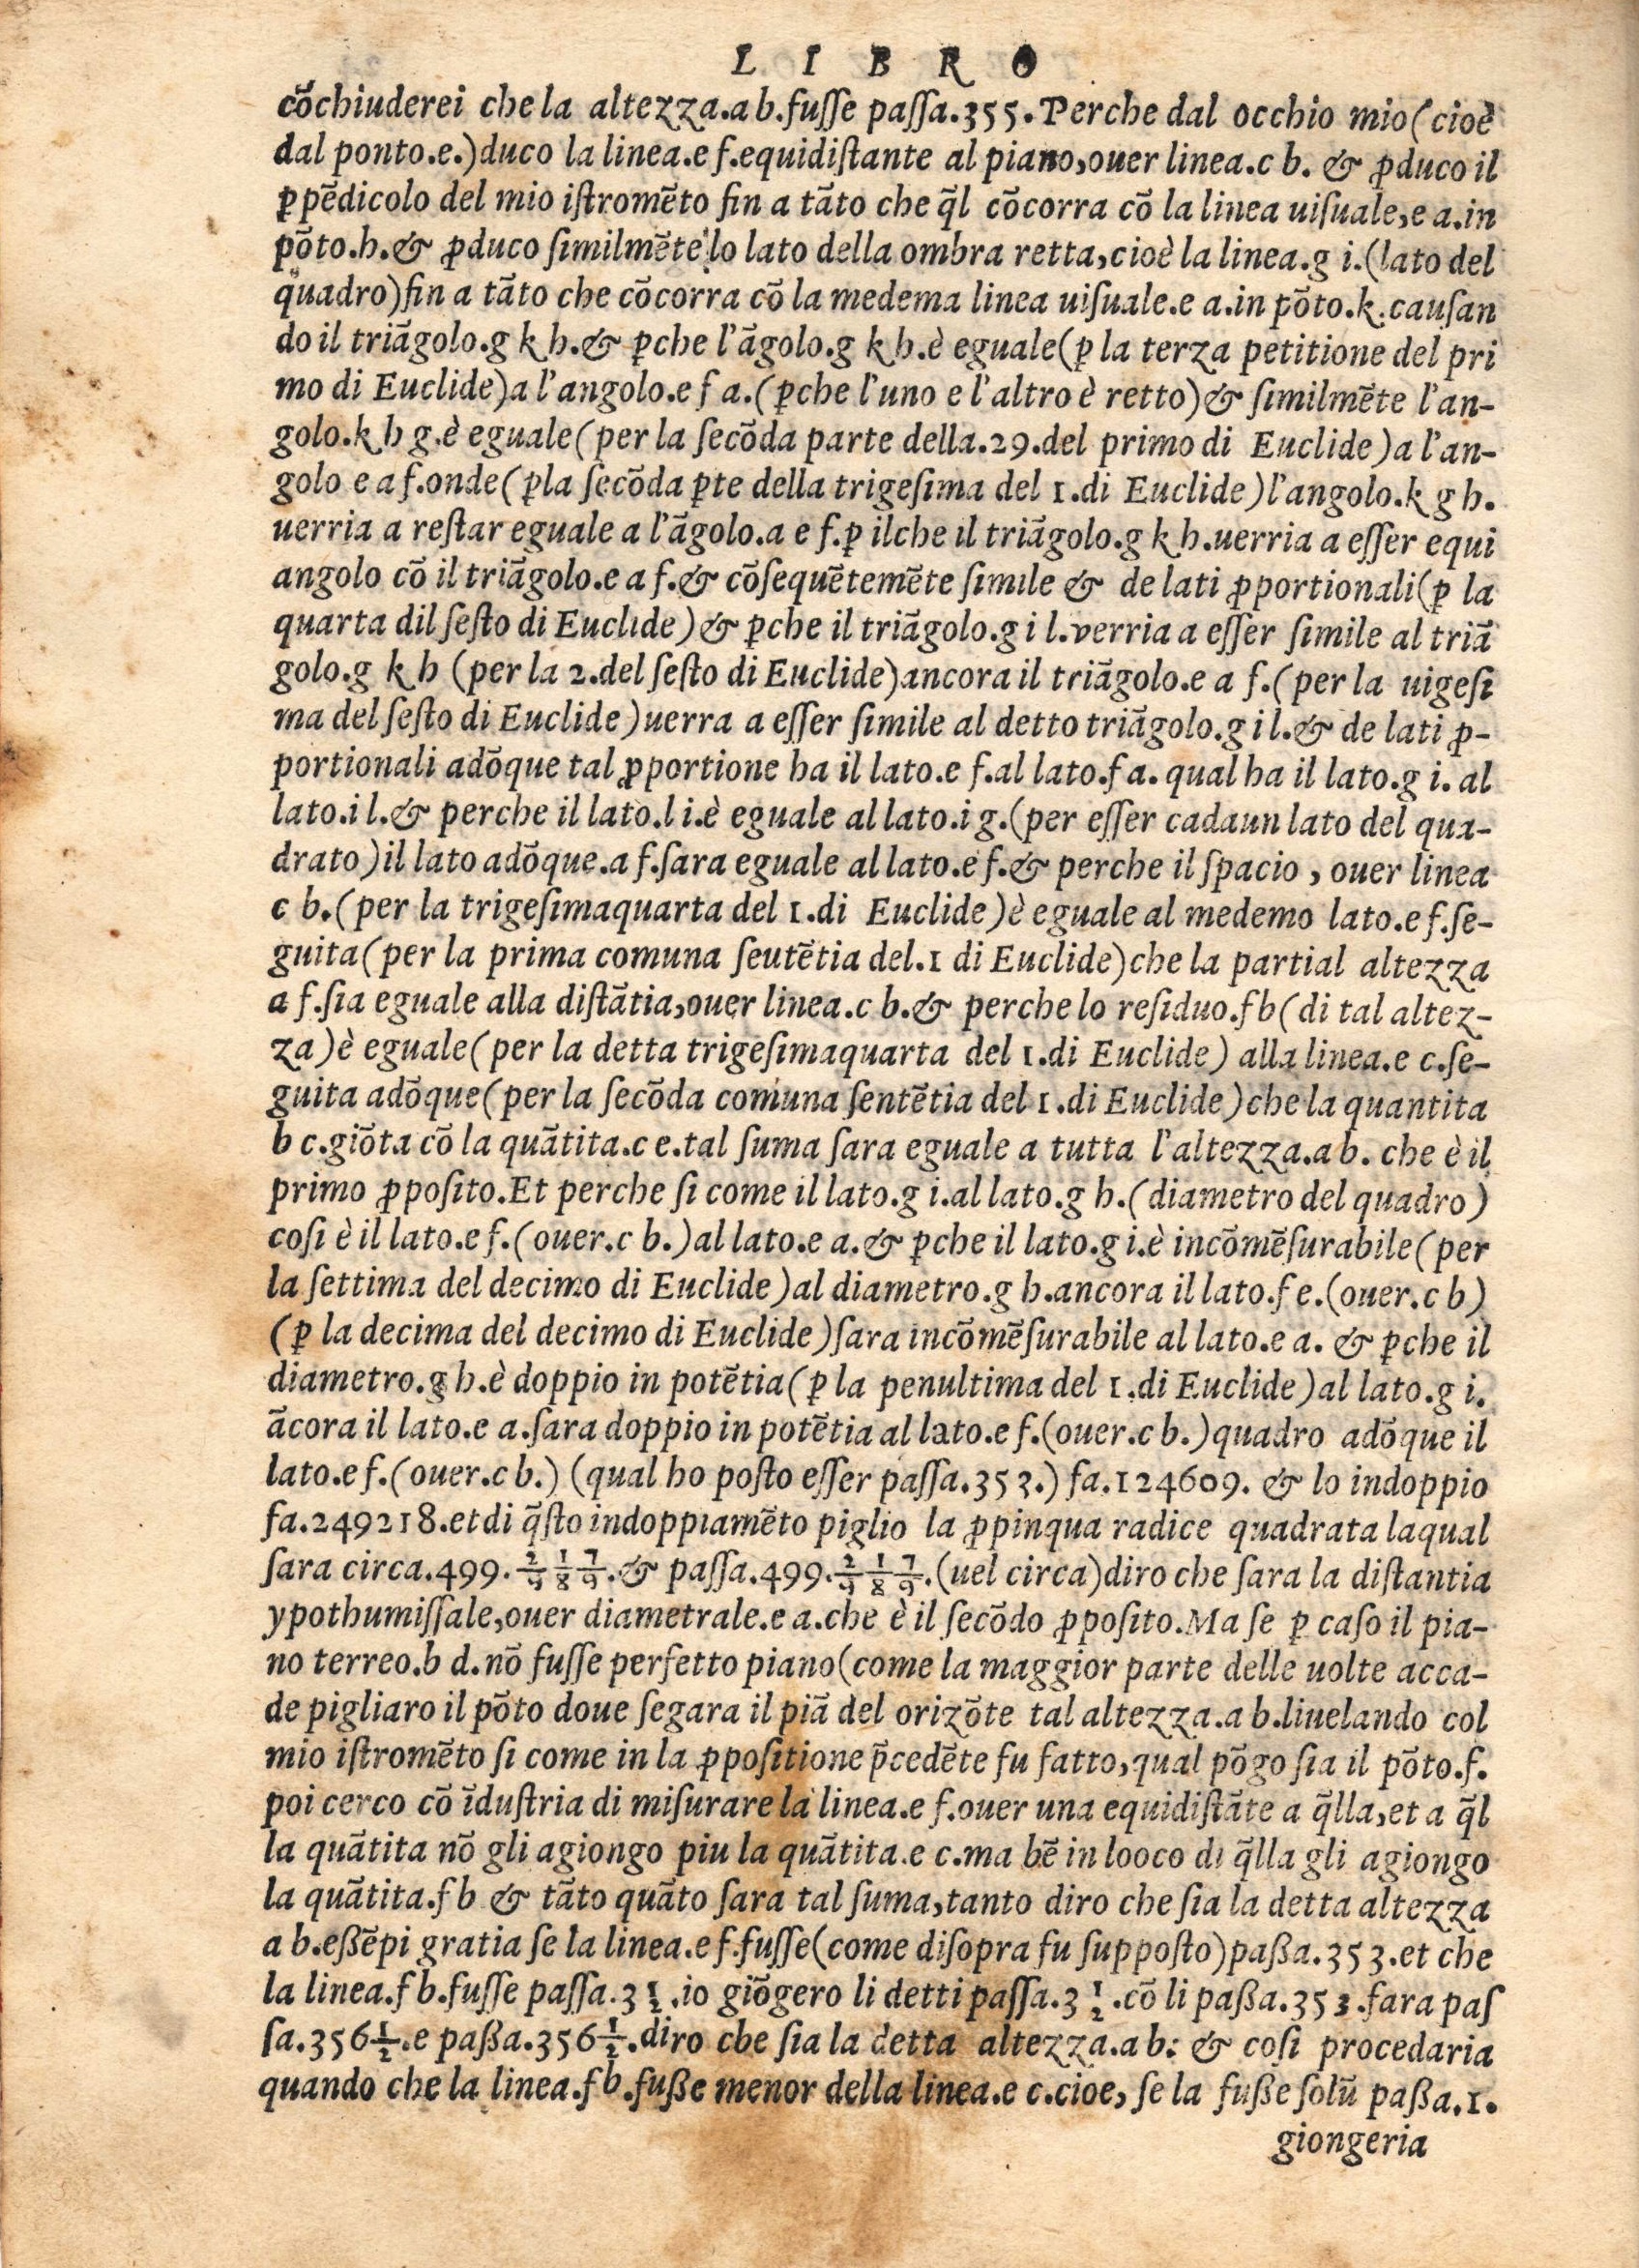 L I B R O
cõchiuderei che la altezza.a b.fuſſe paſſa.355.Perche dal occhio mio(cioè
dal ponto.e.)duco la linea.e f.equidiſtante al piano,ouer linea.c b. & ꝓduco il
ꝑpẽdicolo del mio iſtromẽto fin a tãto che q̃l cõcorra cõ la linea uiſuale,e a.in
põto.h.& ꝓduco ſimilmẽte lo lato della ombra retta,cioè la linea.g i.(lato del
quadro)fin a tãto che cõcorra cõ la medema linea uiſuale.e a.in põto.k.cauſan
do il triãgolo.g k h.& ꝑche l'ãgolo.g k h.è eguale(ꝑ la terza petitione del pri
mo di Euclide)a l'angolo.e f a.(ꝑche l'uno e l'altro è retto)& ſimilmẽte l'an-
golo.k h g.è eguale(per la ſecõda parte della.29.del primo di Euclide)a l'an-
golo e a f.onde(ꝑla ſecõda ꝑte della trigeſima del 1.di Euclide)l'angolo.k g h.
uerria a reſtar eguale a l'ãgolo.a e f.ꝑ ilche il triãgolo.g k h.uerria a eſſer equi
angolo cõ il triãgolo.e a f.& cõſequẽtemẽte ſimile & de lati ꝓportionali(ꝑ la
quarta dil ſeſto di Euclide)& ꝑche il triãgolo.g i l.verria a eſſer ſimile al triã
golo.g k h (per la 2.del ſeſto di Euclide)ancora il triãgolo.e a f.(per la uigeſi
ma del ſeſto di Euclide)uerra a eſſer ſimile al detto triãgolo.g i l.& de lati ꝓ-
portionali adõque tal ꝓportione ha il lato.e f.al lato.f a. qual ha il lato.g i. al
lato.i l.& perche il lato.l i.è eguale al lato.i g.(per eſſer cadaun lato del qua-
drato)il lato adõque.a f.ſara eguale al lato.e f.& perche il ſpacio , ouer linea
c b.(per la trigeſimaquarta del 1.di Euclide)è eguale al medemo lato.e f.ſe-
guita(per la prima comuna ſeutẽtia del.1 di Euclide)che la partial altezza
a f.ſia eguale alla diſtãtia,ouer linea.c b.& perche lo reſiduo.f b(di tal altez-
za)è eguale(per la detta trigeſimaquarta del 1.di Euclide) alla linea.e c.ſe-
guita adõque(per la ſecõda comuna ſentẽtia del 1.di Euclide)che la quantita
b c.giõta cõ la quãtita.c e.tal ſuma ſara eguale a tutta l'altezza.a b. che è il
primo ꝓpoſito.Et perche ſi come il lato.g i.al lato.g h.(diametro del quadro)
coſi è il lato.e f.(ouer.c b.)al lato.e a.& ꝑche il lato.g i.è incõmẽſurabile(per
la ſettima del decimo di Euclide)al diametro.g h.ancora il lato.f e.(ouer.c b)
(ꝑ la decima del decimo di Euclide)ſara incõmẽſurabile al lato.e a. & ꝑche il
diametro.g h.è doppio in potẽtia(ꝑ la penultima del 1.di Euclide)al lato.g i.
ãcora il lato.e a.ſara doppio in potẽtia al lato.e f.(ouer.c b.)quadro adõque il
lato.e f.(ouer.c b.) (qual ho poſto eſſer paſſa.353.) fa.124609. & lo indoppio
fa.249218.et di q̃ſto indoppiamẽto piglio la ꝓpinqua radice quadrata laqual
ſara circa.499.2/9 1/8 7/9.& paſſa.499.2/9 1/8 7/9.(uel circa)diro che ſara la diſtantia
ypothumiſſale,ouer diametrale.e a.che è il ſecõdo ꝓpoſito.Ma ſe ꝑ caſo il pia-
no terreo.b d.nõ fuſſe perfetto piano(come la maggior parte delle uolte acca-
de pigliaro il põto doue ſegara il piã del orizõte tal altezza.a b.liuelando col
mio iſtromẽto ſi come in la ꝓpoſitione p̃cedẽte fu fatto,qual põgo ſia il põto.f.
poi cerco cõ ĩduſtria di miſurare la linea.e f.ouer una equidiſtãte a q̃lla,et a q̃l
la quãtita nõ gli agiongo piu la quãtita.e c.ma bẽ in looco di q̃lla gli agiongo
la quãtita.f b & tãto quãto ſara tal ſuma,tanto diro che ſia la detta altezza
a b.eßẽpi gratia ſe la linea.e f.fuſſe(come diſopra fu ſuppoſto)paßa.353.et che
la linea.f b.fuſſe paſſa.3 1/2.io giõgero li detti paſſa.3 1/2.cõ li paßa.353.fara paſ
ſa.356 1/2.e paßa.356 1/2.diro che ſia la detta altezza.a b: & coſi procedaria
quando che la linea.f b.fuße menor della linea.e c.cioe, ſe la fuße ſolũ paßa.1.
giongeria